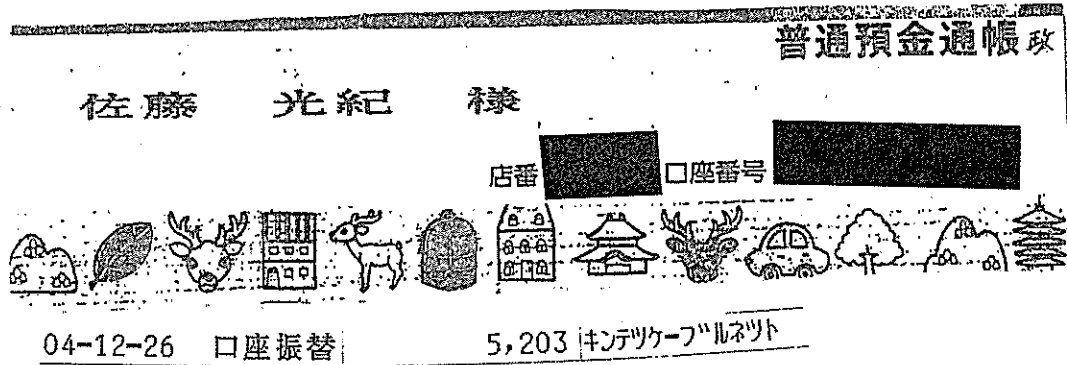 普通預金通帳 政
佐藤 光紀 様
店番 口座番号
04-12-26 口座振替 5,203 キンテツケーブルネツト